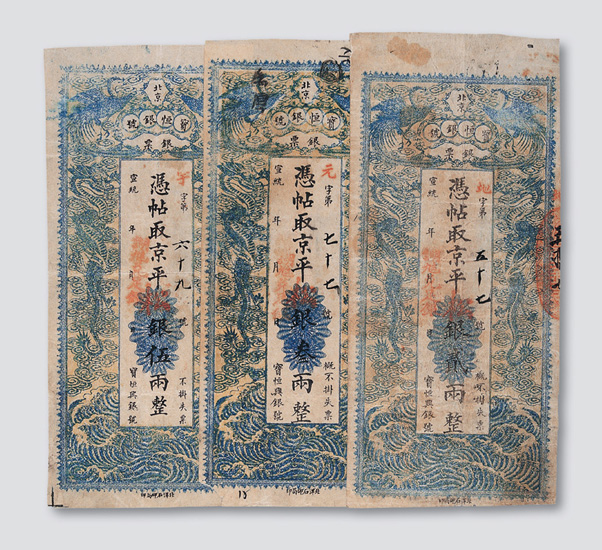 北京
寶恒銀號
銀票
字第 六十九 號
憑帖取京平銀伍兩整
宣統 年 月 日
不掛失票
寶恒興銀號
北京
寶恒銀號
銀票
元字第 七十七 號
憑帖取京平銀叁兩整
宣統 年 月 日
概不掛失票
寶恒興銀號
北京
寶恒銀號
銀票
地字第 五十七 號
憑帖取京平銀貳兩整
宣統 年 月 日
概不掛失票
寶恒興銀號